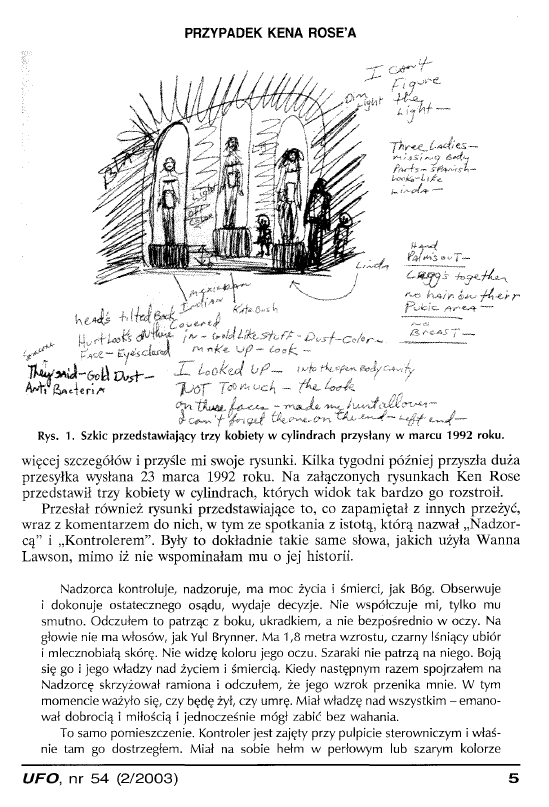 PRZYPADEK KENA ROSE'A
I can't
Figure
the
Light—
Dim
Light
Three Ladies—
missing Body
Parts—Spanish—
Looks-Like
Linda—
Light
Linda
Hand
Palms out—
Leggs together
no hair on their
Pubic Area—
no
Breast—
Indian
Kate Bush
head's tilted Back
Covered
Hurt Looks on there
in—Gold Like stuff—Dust-Color—
Face—Eye's closed
make up—Look—
They said—Gold Dust—
Anti Bacteria
I Looked up— into the open Body cavity
NOT Too much—the Look
on those faces—made me hurt all over—
I can't forget the one on the end—left end—
Rys. 1. Szkic przedstawiający trzy kobiety w cylindrach przysłany w marcu 1992 roku.
więcej szczegółów i przyśle mi swoje rysunki. Kilka tygodni później przyszła duża
przesyłka wysłana 23 marca 1992 roku. Na załączonych rysunkach Ken Rose
przedstawił trzy kobiety w cylindrach, których widok tak bardzo go rozstroił.
Przesłał również rysunki przedstawiające to, co zapamiętał z innych przeżyć,
wraz z komentarzem do nich, w tym ze spotkania z istotą, którą nazwał „Nadzor-
cą” i „Kontrolerem”. Były to dokładnie takie same słowa, jakich użyła Wanna
Lawson, mimo iż nie wspominałam mu o jej historii.
Nadzorca kontroluje, nadzoruje, ma moc życia i śmierci, jak Bóg. Obserwuje
i dokonuje ostatecznego osądu, wydaje decyzje. Nie współczuje mi, tylko mu
smutno. Odczułem to patrząc z boku, ukradkiem, a nie bezpośrednio w oczy. Na
głowie nie ma włosów, jak Yul Brynner. Ma 1,8 metra wzrostu, czarny lśniący ubiór
i mlecznobiałą skórę. Nie widzę koloru jego oczu. Szaraki nie patrzą na niego. Boją
się go i jego władzy nad życiem i śmiercią. Kiedy następnym razem spojrzałem na
Nadzorcę skrzyżował ramiona i odczułem, że jego wzrok przenika mnie. W tym
momencie ważyło się, czy będę żył, czy umrę. Miał władzę nad wszystkim – emano-
wał dobrocią i miłością i jednocześnie mógł zabić bez wahania.
To samo pomieszczenie. Kontroler jest zajęty przy pulpicie sterowniczym i właś-
nie tam go dostrzegłem. Miał na sobie hełm w perłowym lub szarym kolorze
UFO, nr 54 (2/2003)
5